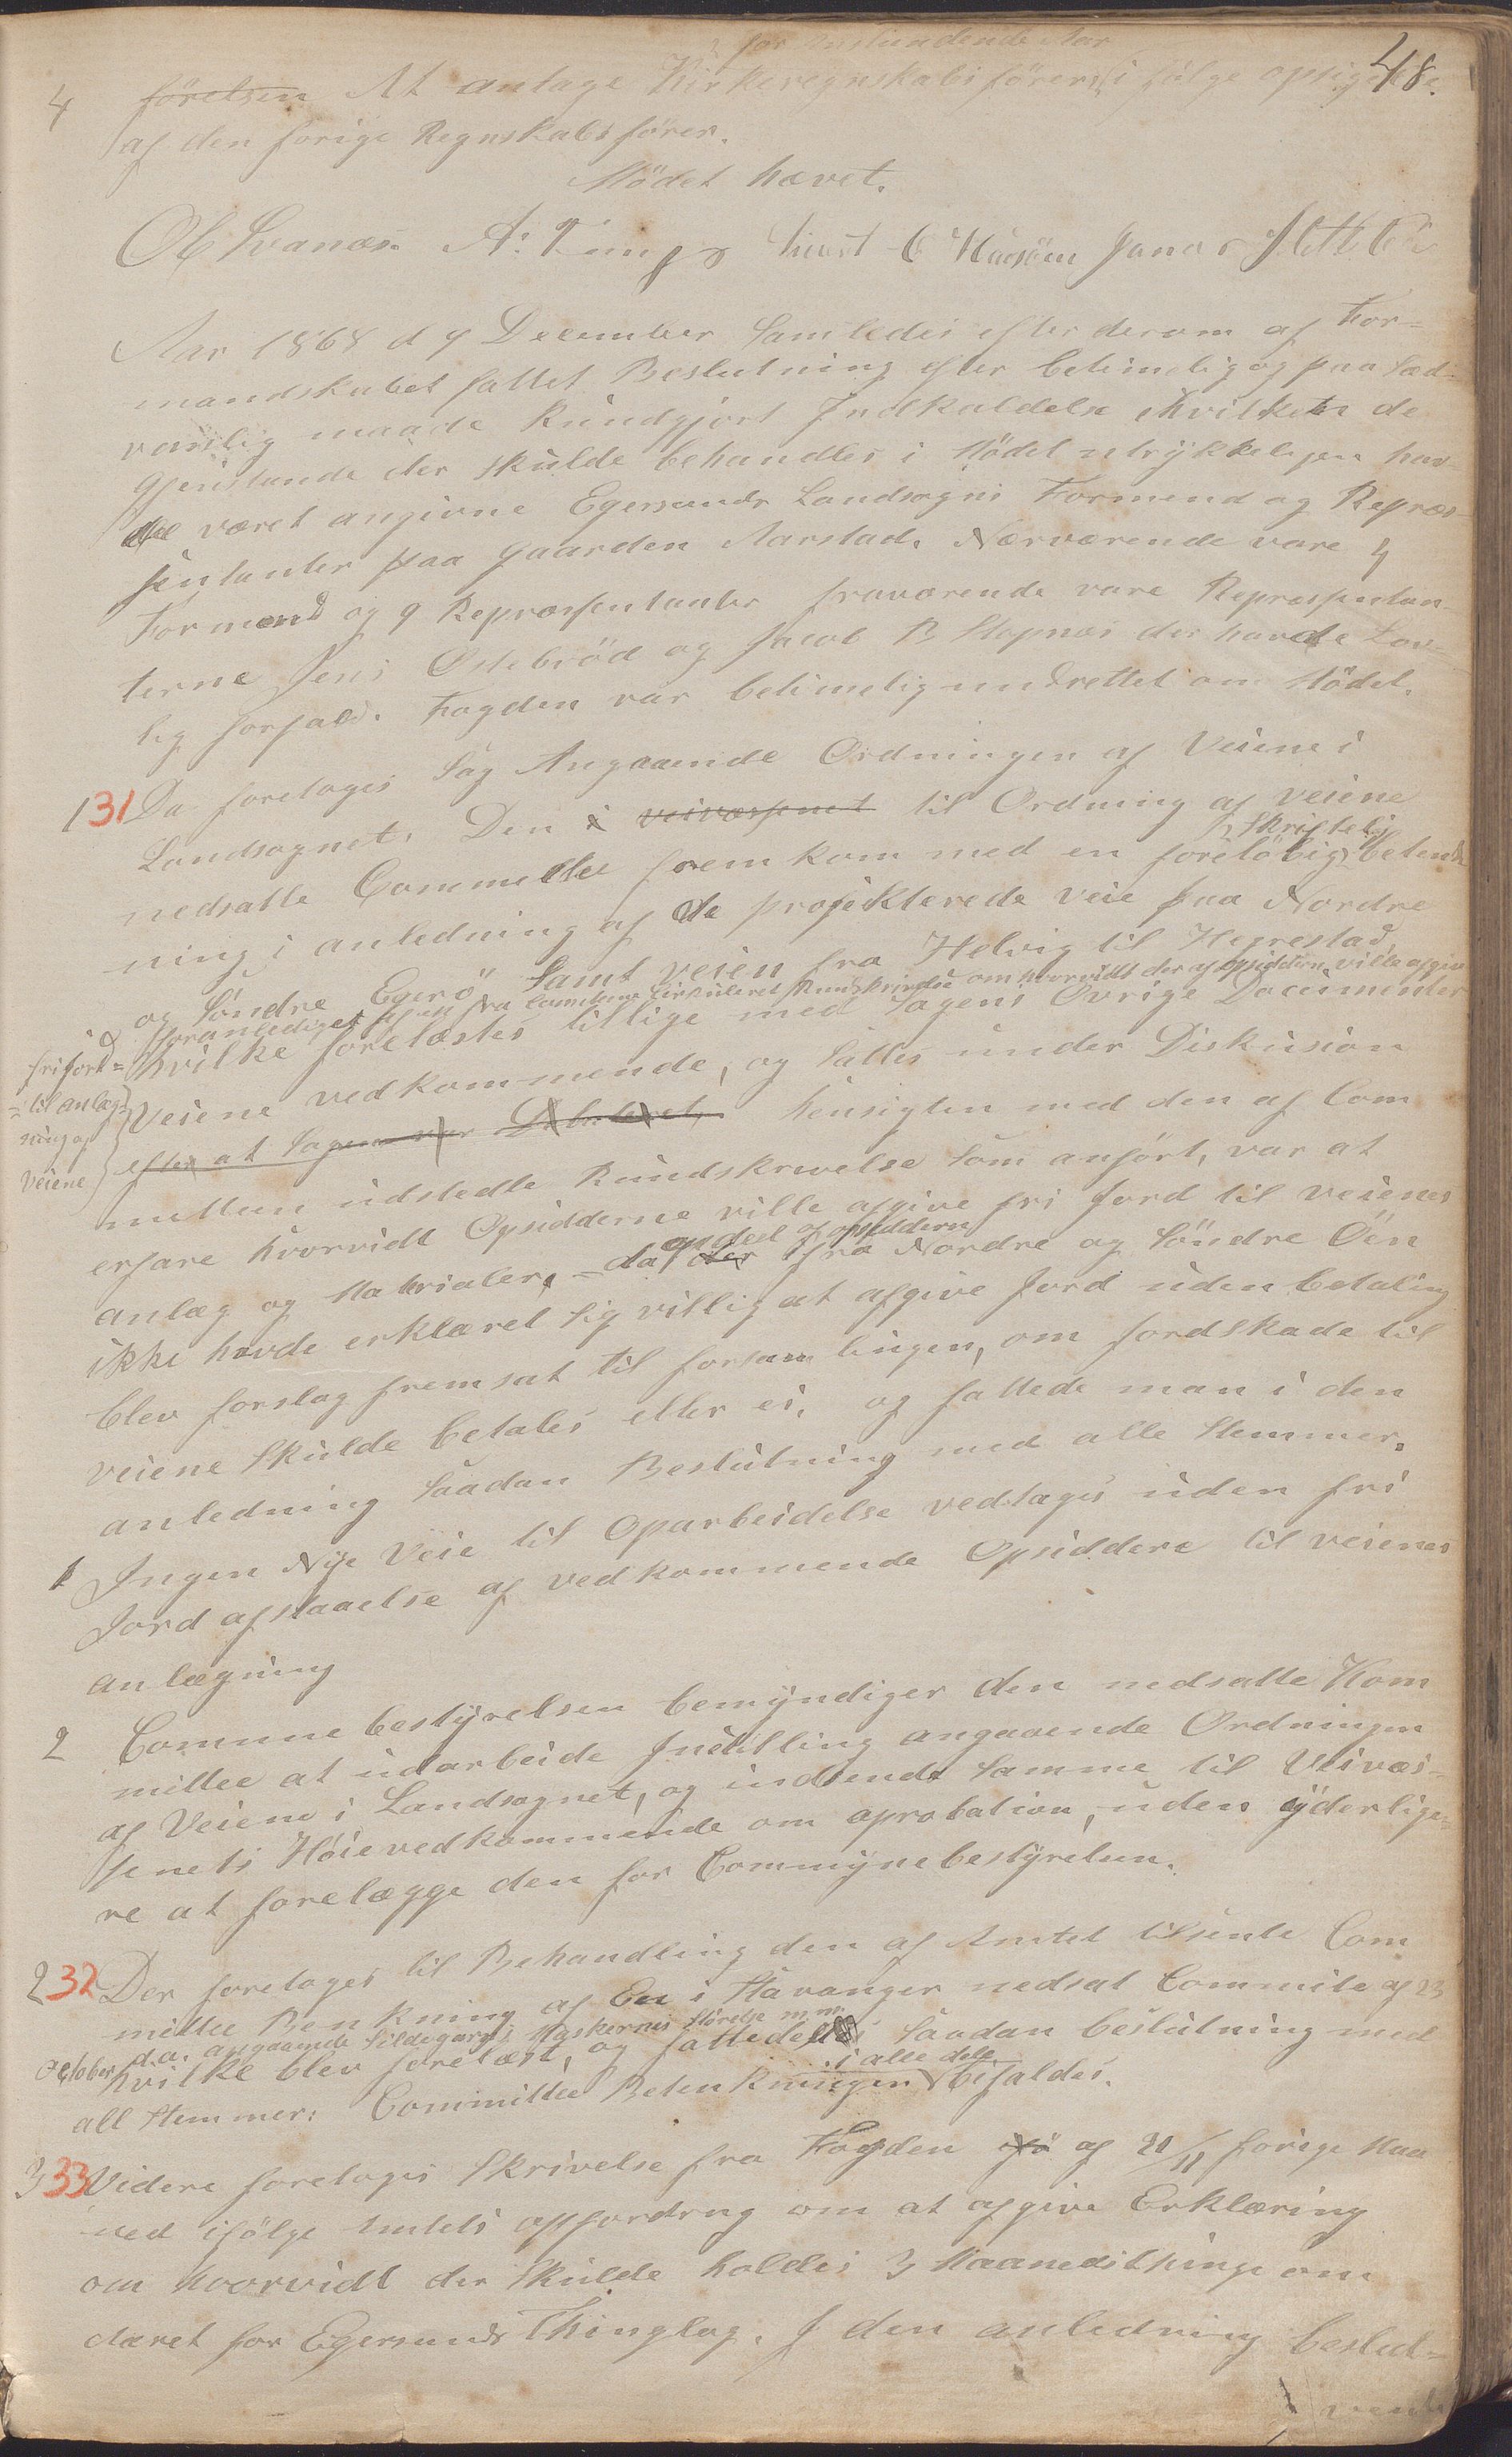 48.
for Anstundende Aar
4 førelsen At antage Kirkeregnskabsfører i følge opsigelse
af den forige Regnskabsfører.
Mödet hævet.
Ol Svanæs. A: Tengs Sivert C Haasøen Janas
Aar 1868 d 9 December Samledes efter derom af For=
mandskabet fattet Beslutning efter betimelig og paa sæd-
vanlig maade kundgjort Indkaldelse i hvilken de
Gjenstande der skulde behandles i Mödet utrykkeligen hav-
de været angivne Egersunds Landsogns Formend og Repræs-
sentanter paa gaarden Aarstad. Nærværende vare 4
Formænd og 9 Repræssentanter fraværende vare Repræssentan-
terne Jens Ostebröd og Jacob B Stapnæs der havde Lov-
lig forfald. Fogden var betimelig undrettet om Mödet.
131 Da foretoges Sag Angaaende Ordningen af Veiene i
Landsognet. Den i veivæssenet til Ordning af veiene
nedsatte Committee frem kom med en foreløbig skriftelig betenk
ning i anledning af de projekterede veie paa Nordre
og Söndre Egerö samt veien fra Helvig til Heprestad,
foranlediget af en fra Comiteen Cirkuleret Rundskrivelse om hvorvidt der af opsidderne ville afgives
fri jord=
=til anlæg=
ning af
veiene
hvilke forelæstes tillige med Sagens Övrige Documenter
Veiene vedkommende, og sattes under Diskusion
efter at Sagen var Debateret, hensigten med den af Com
mitteen udstedte Rundskrivelse som anfört, var at
erfare hvorvidt Opsidderne ville afgive fri Jord til veienes
anlæg og Materialer, - da en deel af opsidderne der ifra Nordre og Söndre Öen
ikke havde erklæret sig villig at afgive Jord uden betaling
blev forslag fremsat til forsamlingen, om Jordskade til
veiene skulde betales eller ei, og fattede man i den
anledning saadan Beslutning med alle Stemmer.
1 Ingen Nye Veie til Oparbeidelse vedtages uden fri
Jord afstaaelse af vedkommende Opsiddere til veienes
anlægning
2 Commune bestyrelsen bemyndiger den nedsatte Kom
mittee at udarbeide Indstilling angaaende Ordningen
af Veiene i Landsognet, og indsende samme til Veivæs=
senets Höie vedkommende om aprobation, uden yderlige=
re at forelægge den for Commynebestyrelsen.
232 Der foretoges til Behandling den af Amtet tilsente Com
mittee Benkning af En i Stavanger nedsat Commite af 23
October d.a. angaaende Sildegarns Maskernes Störelse m.m.
hvilke blev forelæst, og fattedes saadan beslutning med
all Stemmer: Committee Betenkningen i alle dele bifaldes.
333 Videre foretoges Skrivelse fra Fogden af 21/11 forige Maa
ned ifölge Amtets opfordrng om at afgive Erklæring
om hvorvidt der skulde holdes 3 Maanedsthinge om
Aaret for Egersunds Thinglag. I den anledning beslut=
vende